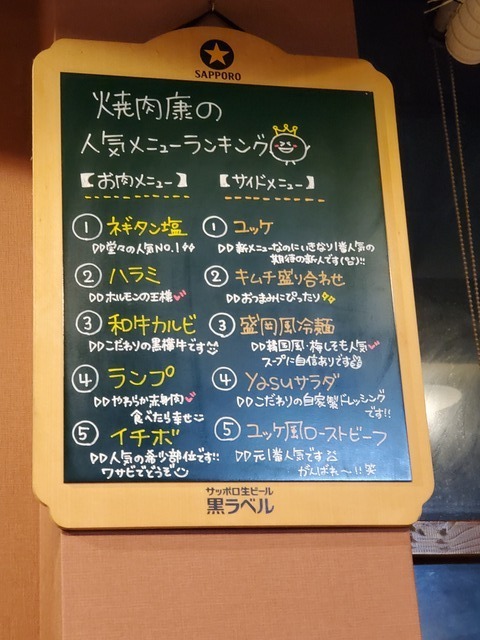 SAPPORO
焼肉康の
人気メニューランキング
【お肉メニュー】
① ネギタン塩
▷▷堂々の人気NO.1
② ハラミ
▷▷ホルモンの王様
③ 和牛カルビ
▷▷こだわりの黒樺牛です
④ ランプ
▷▷やわらか赤身肉
食べたら幸せ
⑤ イチボ
▷▷人気の希少部位です!!
ワサビでどうぞ
【サイドメニュー】
① ユッケ
▷▷新メニューなのにいきなり1番人気の
期待の新人です(^^)!!
② キムチ盛り合わせ
▷▷おつまみにぴったり
③ 盛岡風冷麺
▷▷韓国風・梅しそも人気
スープに自信あります
④ Yasuサラダ
▷▷こだわりの自家製ドレッシング
です!!
⑤ ユッケ風ローストビーフ
▷▷元1番人気です
がんばれ〜!!笑
サッポロ生ビール
黒ラベル